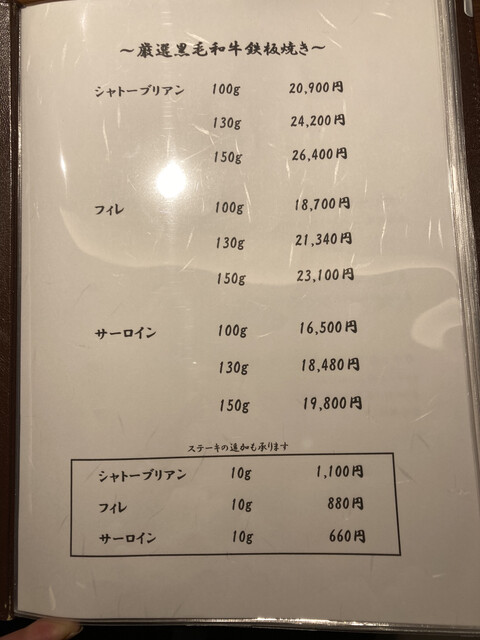 ～厳選黒毛和牛鉄板焼き～
シャトーブリアン 100g 20,900円
130g 24,200円
150g 26,400円
フィレ 100g 18,700円
130g 21,340円
150g 23,100円
サーロイン 100g 16,500円
130g 18,480円
150g 19,800円
ステーキの追加も承ります
シャトーブリアン 10g 1,100円
フィレ 10g 880円
サーロイン 10g 660円